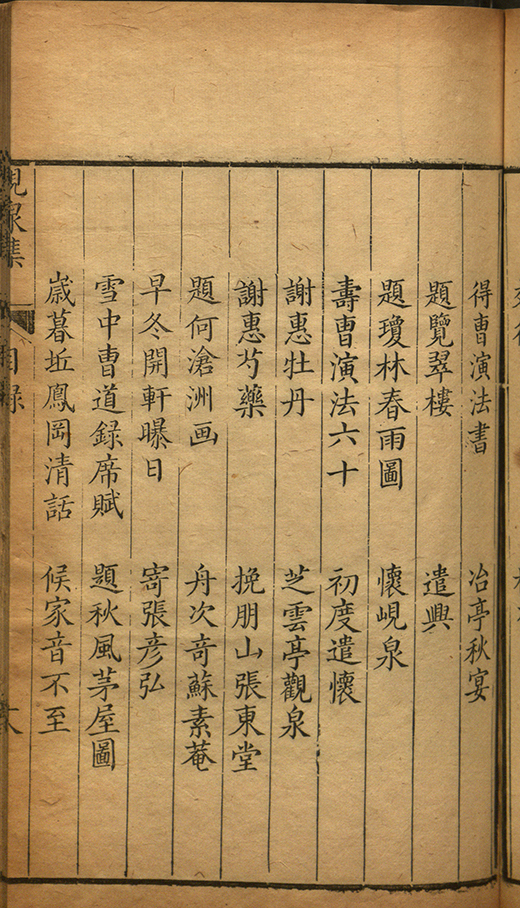 得曹演法書　冶亭秋宴
題覽翠樓　遣興
題瓊林春雨圖　懷峴泉
壽曹演法六十　初度遣懷
謝惠牡丹　芝雲亭觀泉
謝惠芍藥　挽朋山張東堂
題何滄洲画　舟次寄蘇素菴
早冬開軒曝日　寄張彥弘
雪中曹道録席賦　題秋風茅屋圖
歲暮坵鳳岡清話　候家音不至
峴泉集
目録